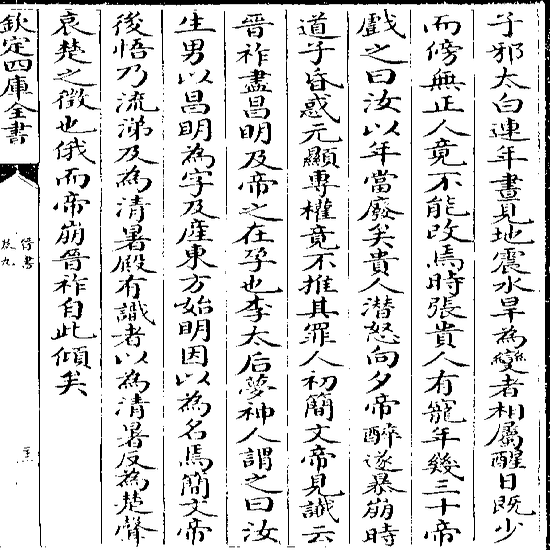 子邪太白連年晝見地震水旱為變者相屬醒日既少
而傍無正人竟不能改焉時張貴人有寵年幾三十帝
戲之曰汝以年當廢矣貴人潛怒向夕帝醉遂暴崩時
道子昏惑元顯專權竟不推其罪人初簡文帝見讖云
晉祚盡昌明及帝之在孕也李太后夢神人謂之曰汝
生男以昌明為字及產東方始明因以為名焉簡文帝
後悟乃流涕及為清暑殿有識者以為清暑反為楚聲
哀楚之徵也俄而帝崩晉祚自此傾矣
欽定四庫全書
晉書
卷九